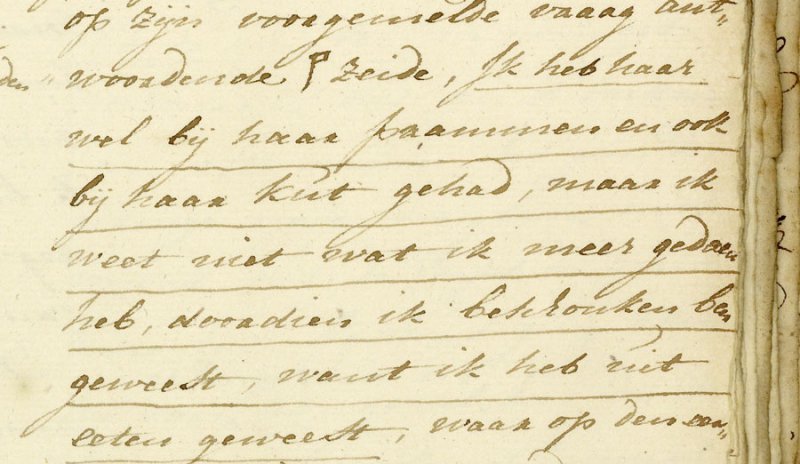 op zijn voorgemelde vraag ant„
woordende zeide, Ik heb haar
wel bij haar praammen en ook
bij haar kut gehad, maar ik
weet niet wat ik meer gedaen
heb, doordien ik beschonken ben
geweest, want ik heb uit
eeten geweest, waar op den een„